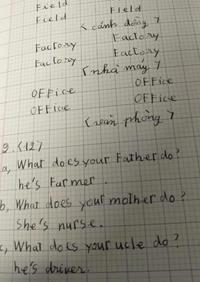 Field Field
Field
< cánh đồng >
Factory Factory
Factory Factory
< nhà máy >
OFFice OFFice
OFFice OFFice
< văn phòng >
9. (12)
a, What does your Father do?
he's Farmer.
b, What does your mother do?
She's nurse.
c, What does your ucle do?
he's driver.